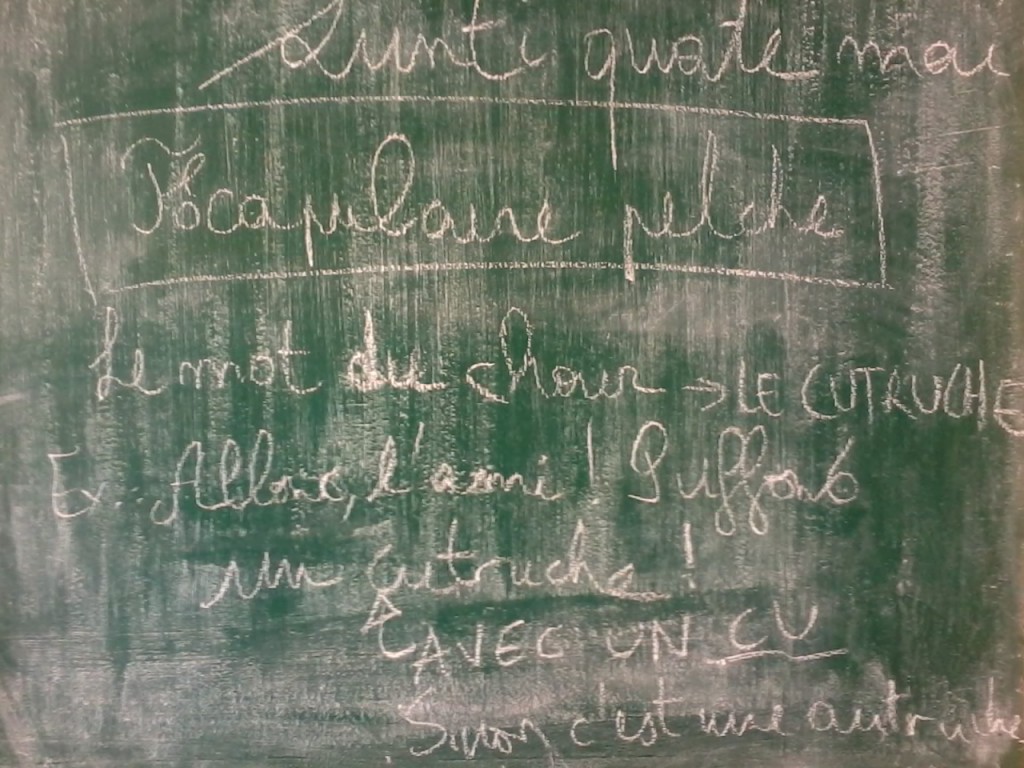 Lunti quate mai
Focapulaire pelche
Le mot du chour → LE CUTRUCHE
Ex: Allons, l'ami ! Puffons
un cutruche !
AVEC UN CU
Sinon c'est une autruche